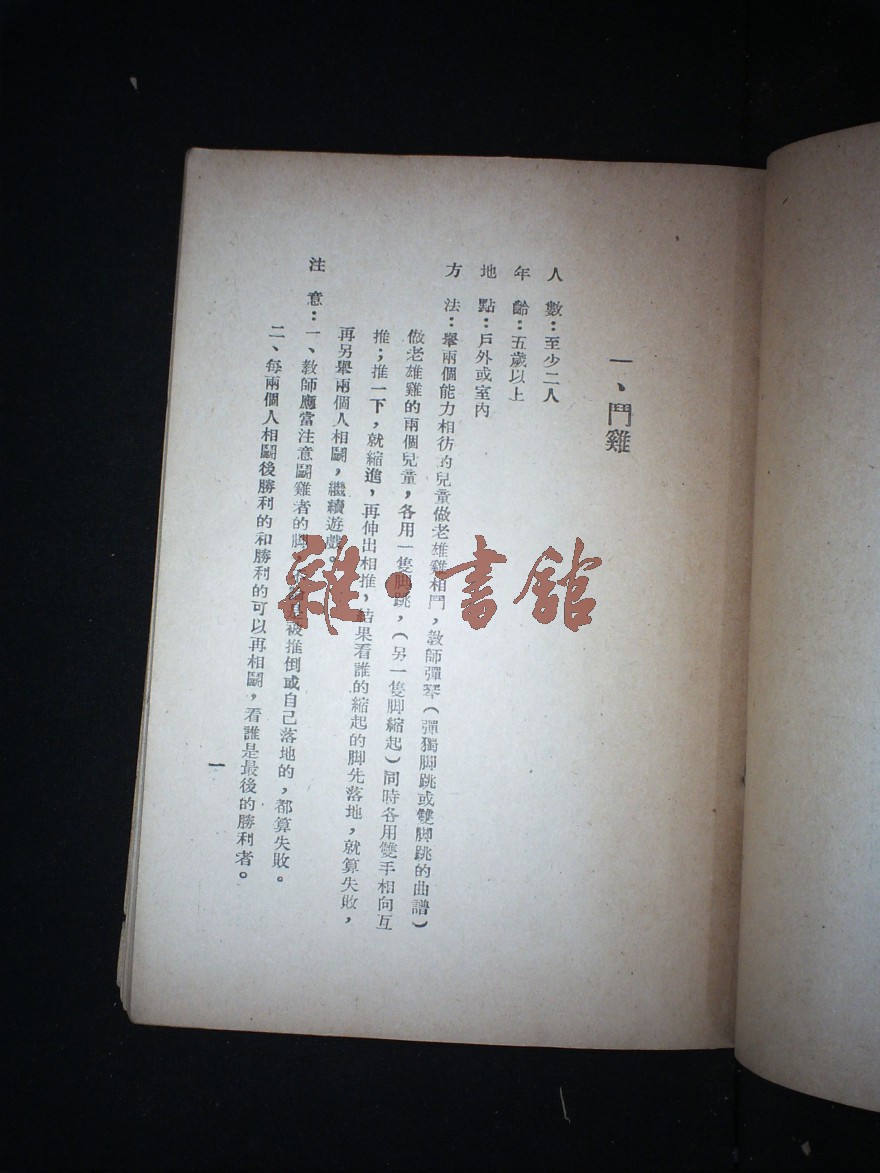 一、鬥雞
人數：至少二人
年齡：五歲以上
地點：戶外或室內
方法：舉兩個能力相彷的兒童做老雄雞相鬥，教師彈琴（彈獨脚跳或雙脚跳的曲譜）
做老雄雞的兩個兒童，各用一隻脚跳，（另一隻脚縮起）同時各用雙手相向互
推；推一下，就縮進，再伸出相推，結果看誰的縮起的脚先落地，就算失敗，
再另舉兩個人相鬭，繼續遊戲。
注意：一、教師應當注意鬭雞者的脚，被推倒或自己落地的，都算失敗。
二、每兩個人相鬭後勝利的和勝利的可以再相鬭，看誰是最後的勝利者。
一
雜·書館